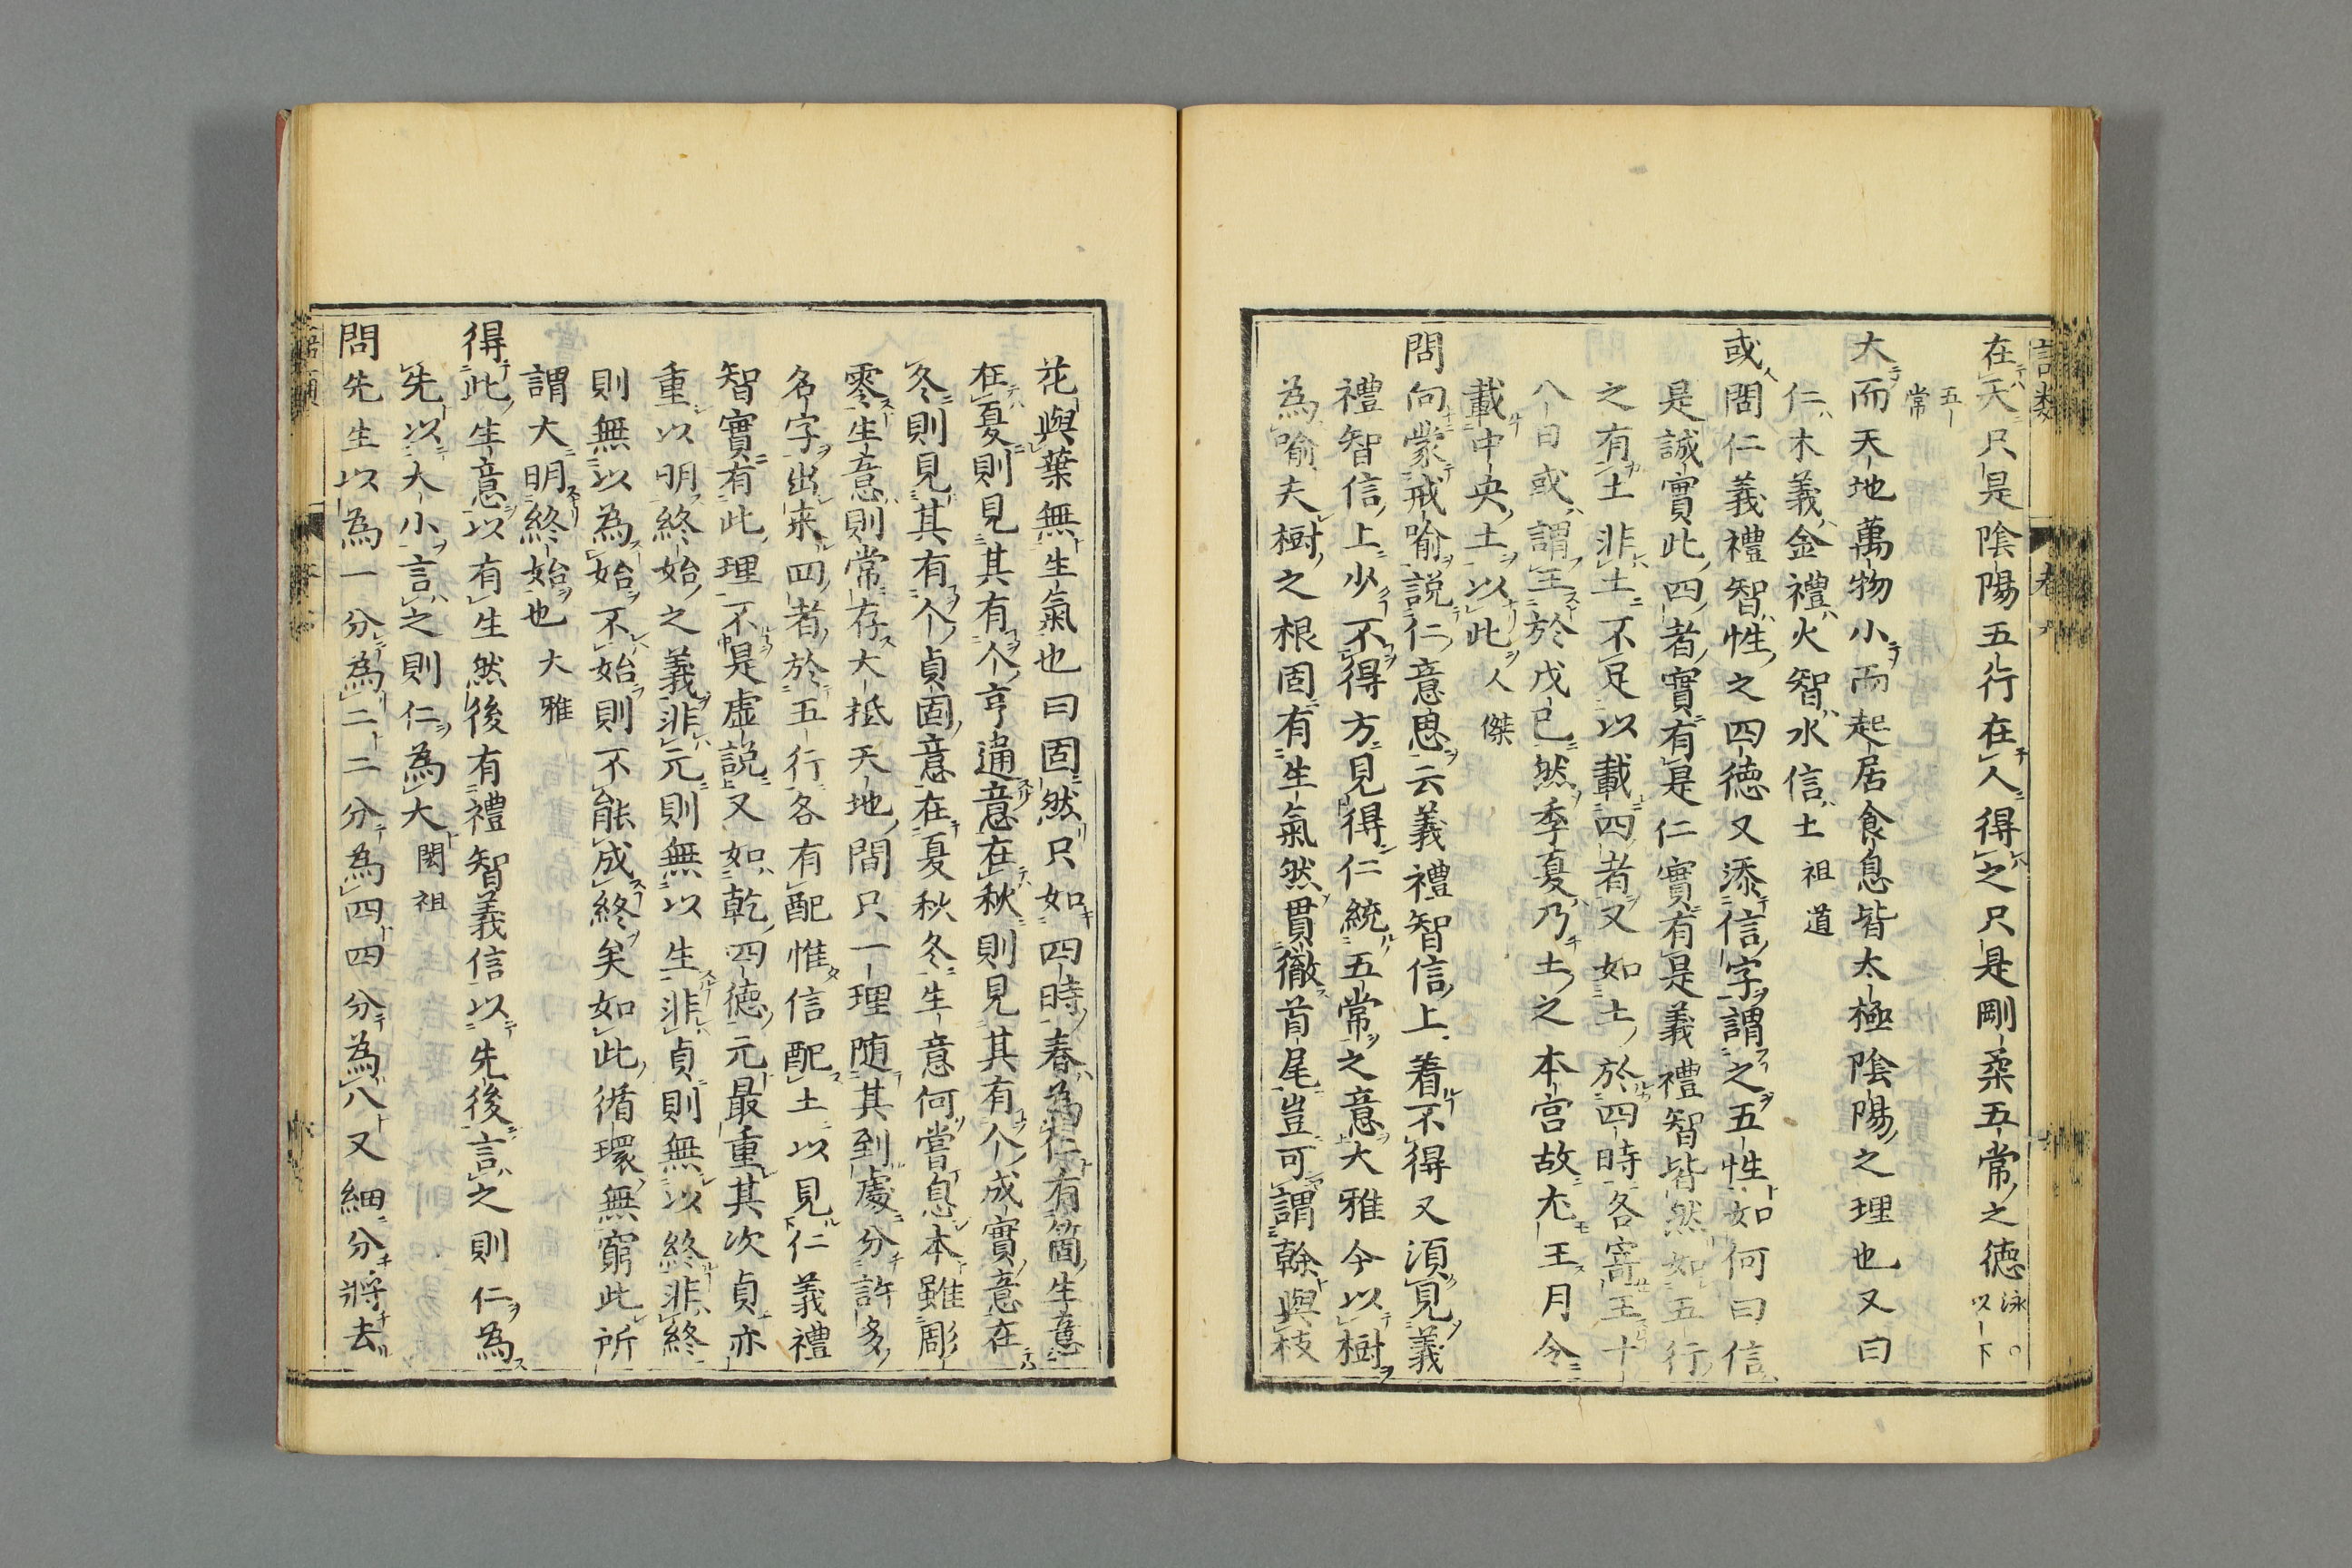 在天只是陰陽五行在人得之只是剛柔五常之德 泳 以下
五常
大而天地萬物小而起居食息皆太極陰陽之理也又曰
仁木義金禮火智水信土 祖道
或問仁義禮智性之四德又添信字謂之五性如何曰信
是誠實此四者實有是仁實有是義禮智皆然如五行
之有土非土不足以載四者又如土於四時各寄王十
八日或謂王於戊己然季夏乃土之本宮故尤王月令
載中央土以此 人傑
問向蒙戒喻説仁意思云義禮智信上着不得又須見義
禮智信上少不得方見得仁統五常之意大雅今以樹
為喻夫樹之根固有生氣然貫徹首尾豈可謂榦與枝
花與葉無生氣也曰固然只如四時春為仁有箇生意
在夏則見其有个亨通意在秋則見其有个成實意在
冬則見其有个貞固意在夏秋冬生意何嘗息本雖彫
零生意則常存大抵天地間只一理随其到處分許多
名字出来四者於五行各有配惟信配土以見仁義禮
智實有此理不是虛説又如乾四德元最重其次貞亦
重以明終始之義非元則無以生非貞則無以終非終
則無以為始不始則不能成終矣如此循環無窮此所
謂大明終始也 大雅
得此生意以有生然後有禮智義信以先後言之則仁為
先以大小言之則仁為大 閎祖
問先生以為一分為二二分為四四分為八又細分將去